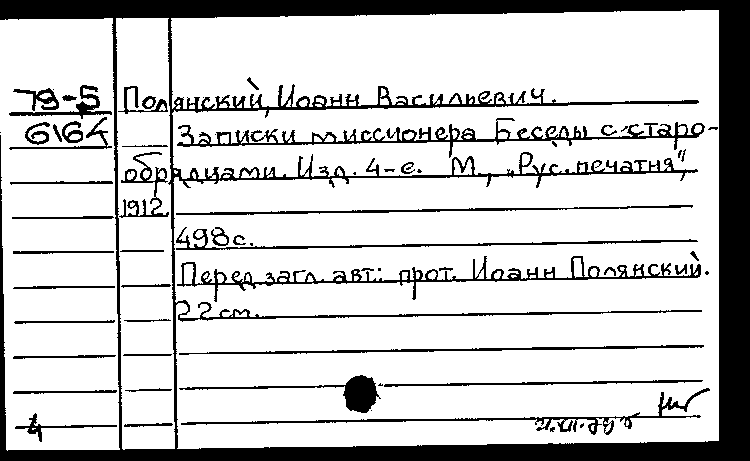 79-5 Полянский, Иоанн Васильевич.
6164 Записки миссионера Беседы с старо-
обрядцами. Изд. 4-е. М., „Рус. печатня",
1912
498 с.
Перед загл. авт.: прот. Иоанн Полянский.
22 см.
4